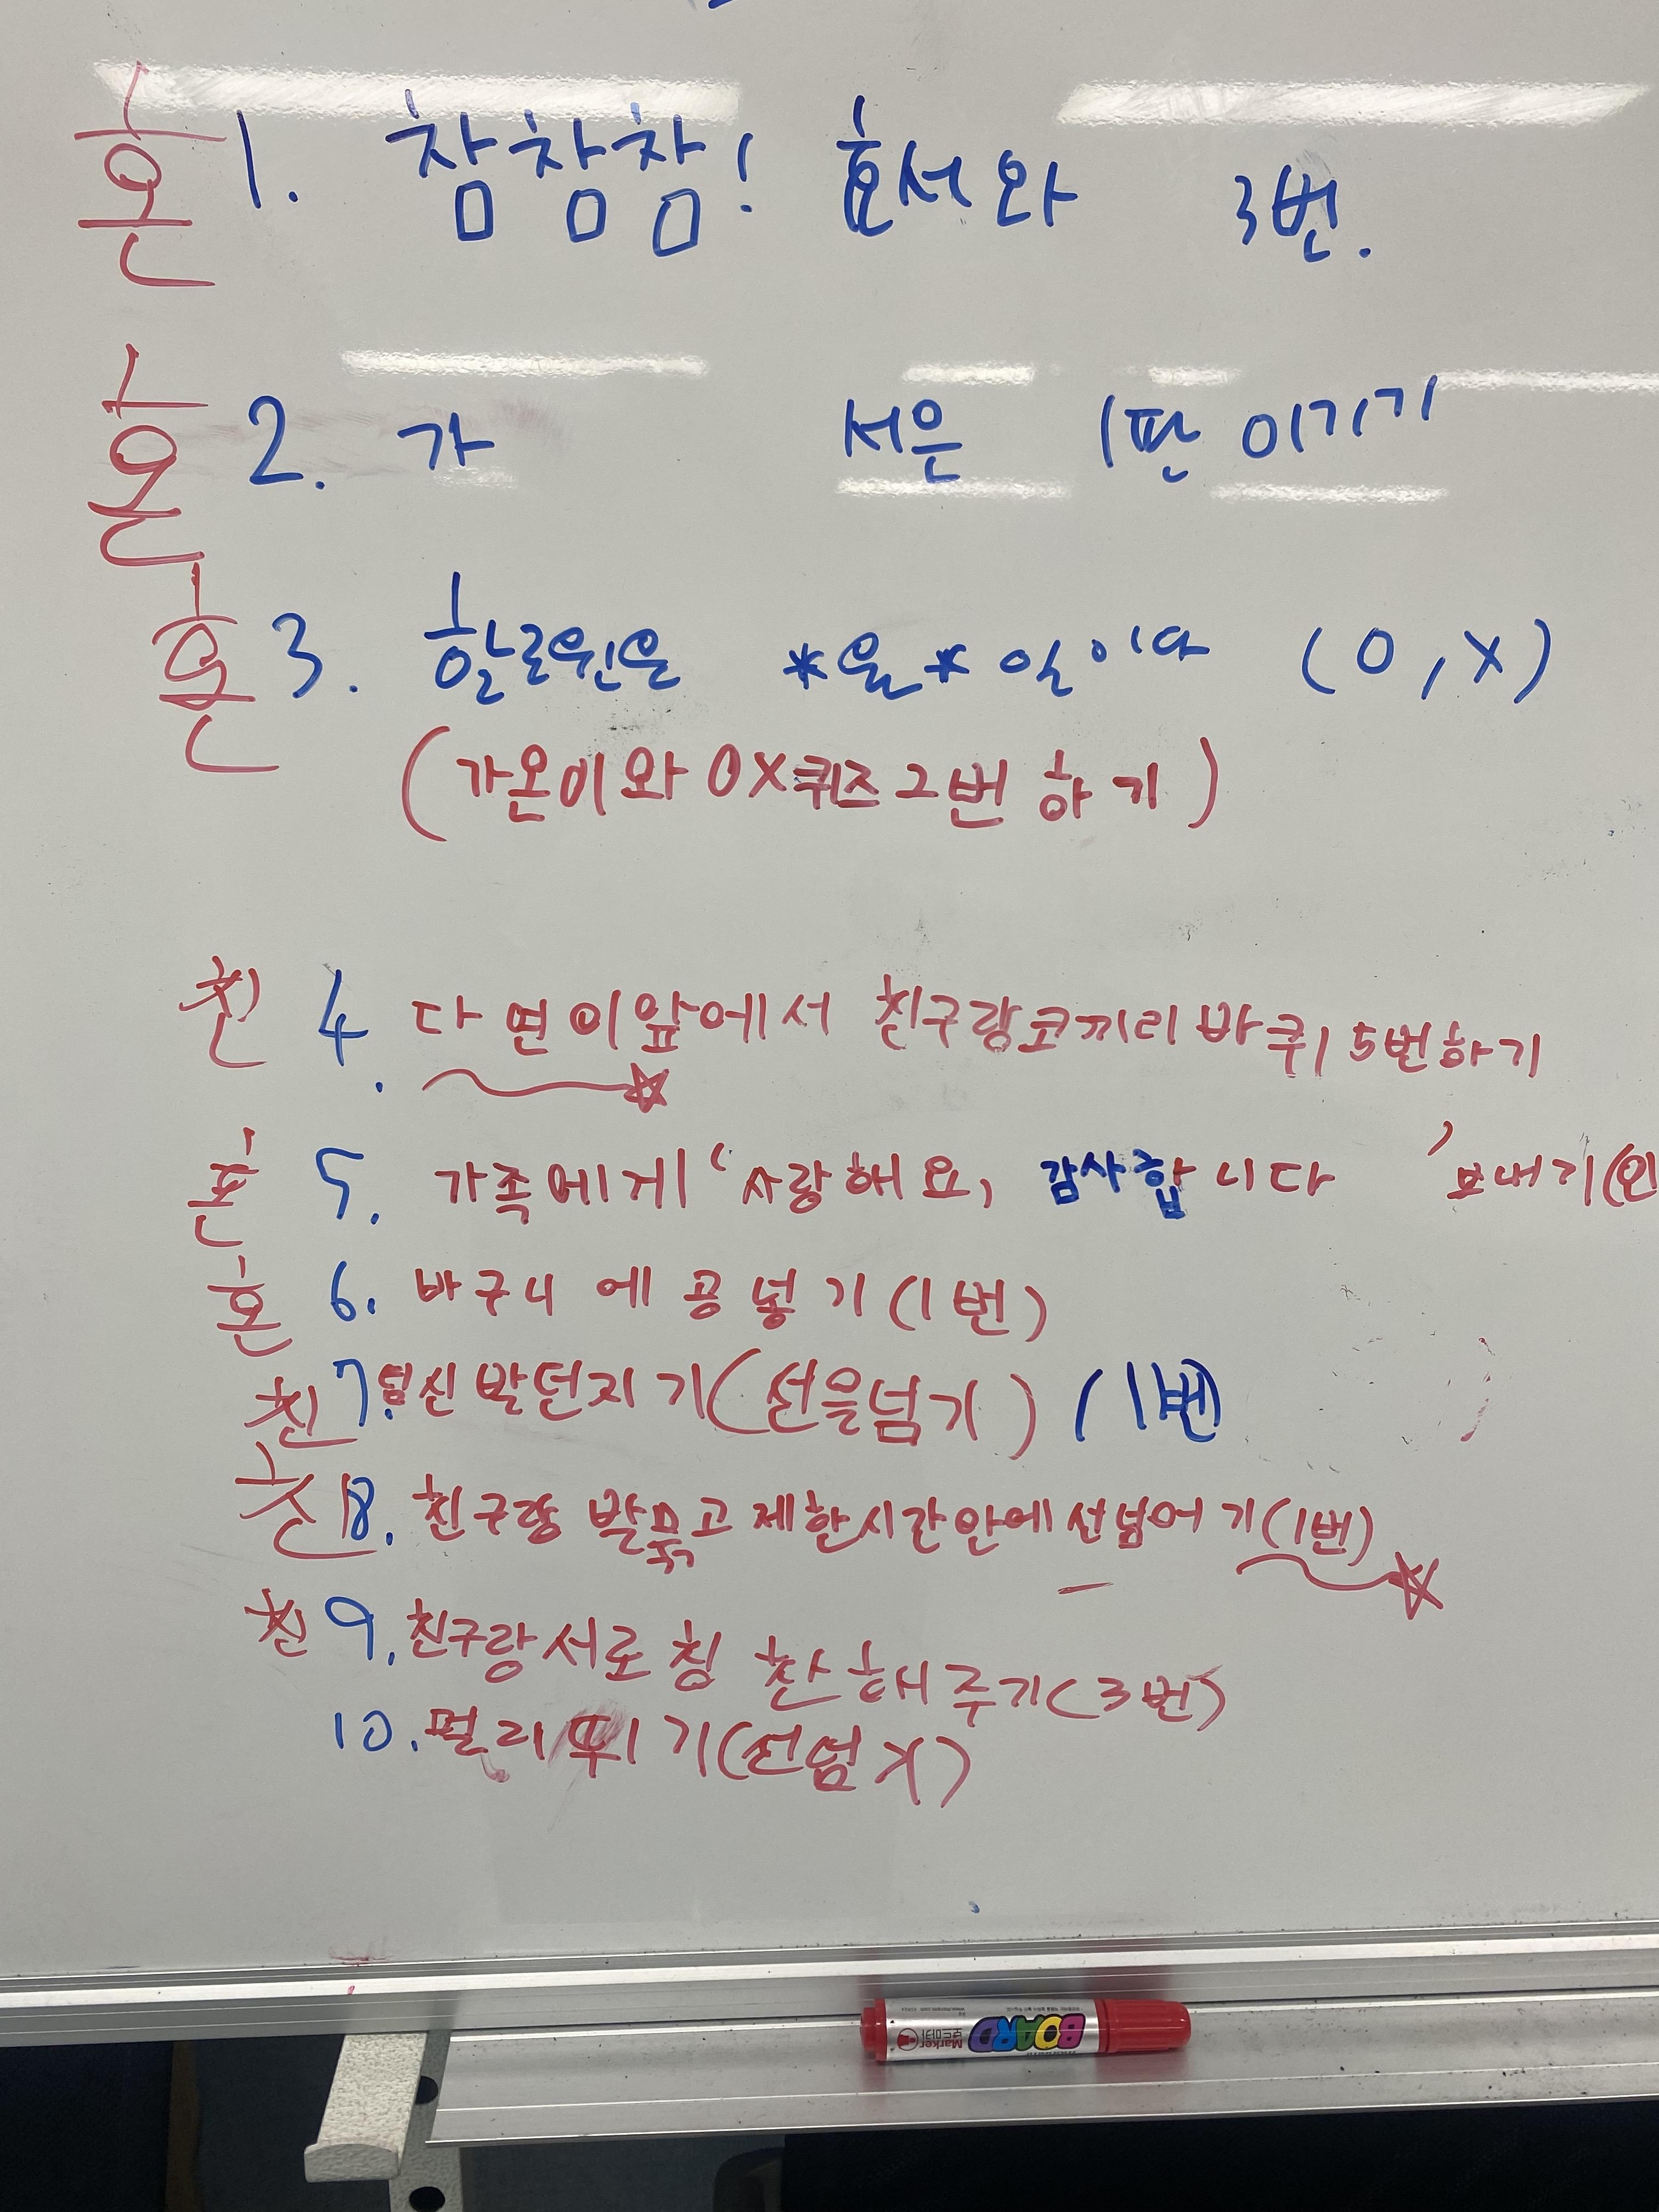 혼 1. 참참참! 효서와 3번.
혼 2. 가 서은 1판 이기기
혼 3. 할로윈은 *월* 일이다 (O, X)
(가온이와 OX퀴즈 2번 하기)
친 4. 다연이앞에서 친구랑코끼리바퀴 5번하기
혼 5. 가족에게 '사랑해요, 감사합니다 ' 보내기(인
혼 6. 바구니에 공넣기(1번)
친 7. 텀신발던지기(선을넘기) (1번)
친 8. 친구랑 발묶고 제한시간안에 선넘어기(1번)
친 9. 친구랑서로칭찬해주기(3번)
10. 멀리뛰기(선넘기)
BOARD
Marker
보드마카